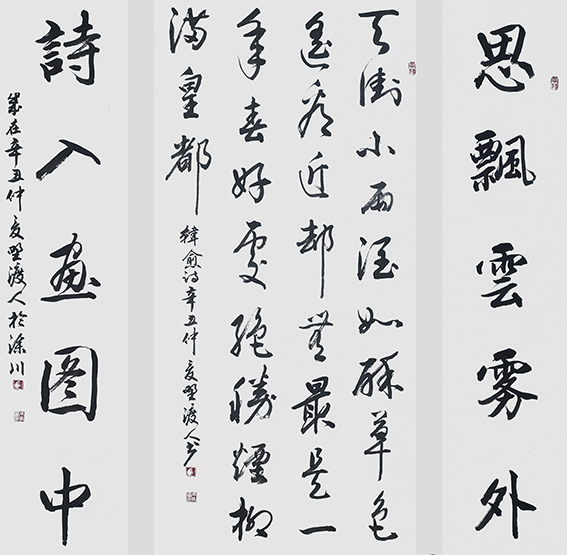 思飄雲雾外
天街小雨潤如酥草色
遙看近却無最是一
年春好處絕勝煙柳
滿皇都
韓愈詩辛丑仲夏野渡人書
詩入畫图中
歲在辛丑仲夏野渡人於滁川